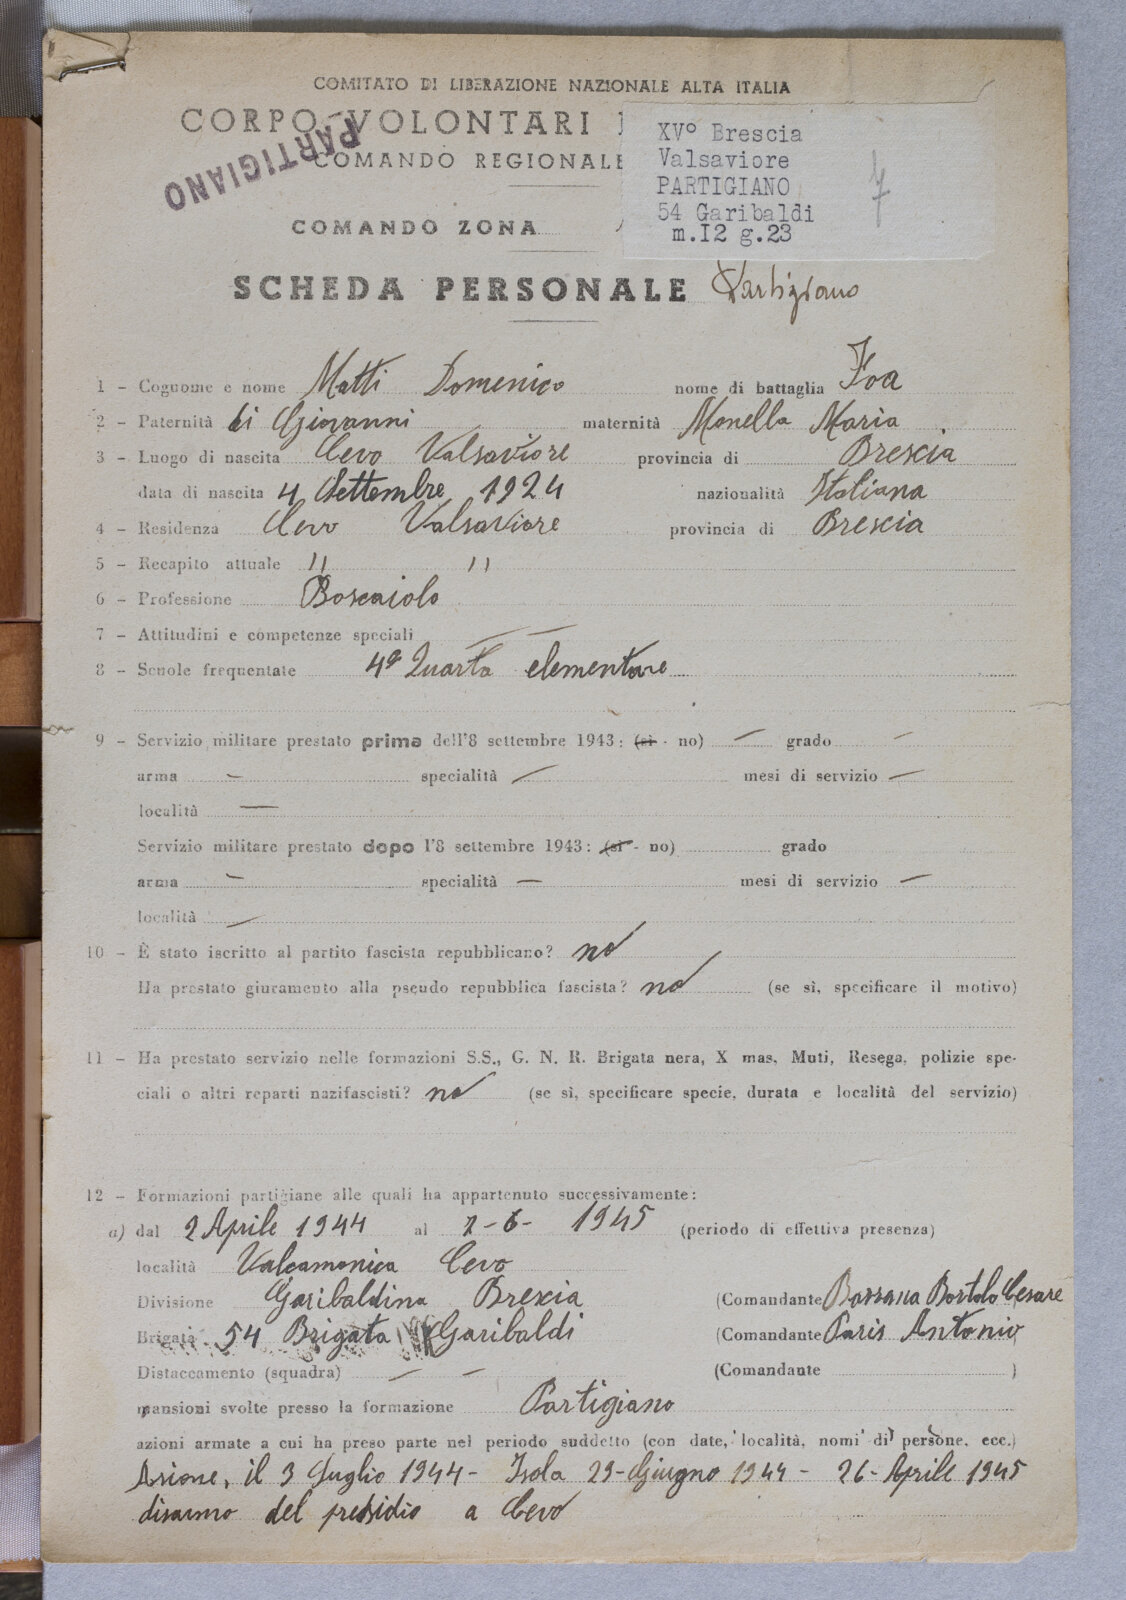 COMITATO DI LIBERAZIONE NAZIONALE ALTA ITALIA
CORPO VOLONTARI
COMANDO REGIONALE
PARTIGIANO
XV° Brescia
Valsaviore
PARTIGIANO
54 Garibaldi
m.I2 g.23
7
COMANDO ZONA
SCHEDA PERSONALE Partigiano
1 - Cognome e nome Matti Domenico nome di battaglia Foa
2 - Paternità di Giovanni maternità Monella Maria
3 - Luogo di nascita Cevo Valsaviore provincia di Brescia
data di nascita 4 Settembre 1924 nazionalità Italiana
4 - Residenza Cevo Valsaviore provincia di Brescia
5 - Recapito attuale " "
6 - Professione Boscaiolo
7 - Attitudini e competenze speciali — —
8 - Scuole frequentate 4ª Quarta elementare
9 - Servizio militare prestato prima dell'8 settembre 1943: (sì - no) — grado —
arma — specialità — mesi di servizio —
località —
Servizio militare prestato dopo l'8 settembre 1943: (sì - no) grado
arma — specialità — mesi di servizio —
località —
10 - È stato iscritto al partito fascista repubblicano? no
Ha prestato giuramento alla pseudo repubblica fascista? no (se sì, specificare il motivo)
11 - Ha prestato servizio nelle formazioni S.S., G. N. R. Brigata nera, X mas, Muti, Resega, polizie spe-
ciali o altri reparti nazifascisti? no (se sì, specificare specie, durata e località del servizio)
12 - Formazioni partigiane alle quali ha appartenuto successivamente:
a) dal 2 Aprile 1944 al 2-6- 1945 (periodo di effettiva presenza)
località Valcamonica Cevo
Divisione Garibaldina Brescia (Comandante Bortolo Cesare
Brigata 54 Brigata Garibaldi (Comandante Paris Antonio
Distaccamento (squadra) — — (Comandante )
mansioni svolte presso la formazione Partigiano
azioni armate a cui ha preso parte nel periodo suddetto (con date, località, nomi di persone, ecc.)
Azione, il 3 Luglio 1944- Isola 29-Giugno 1944 - 26-Aprile 1945
disarmo del presidio a Cevo